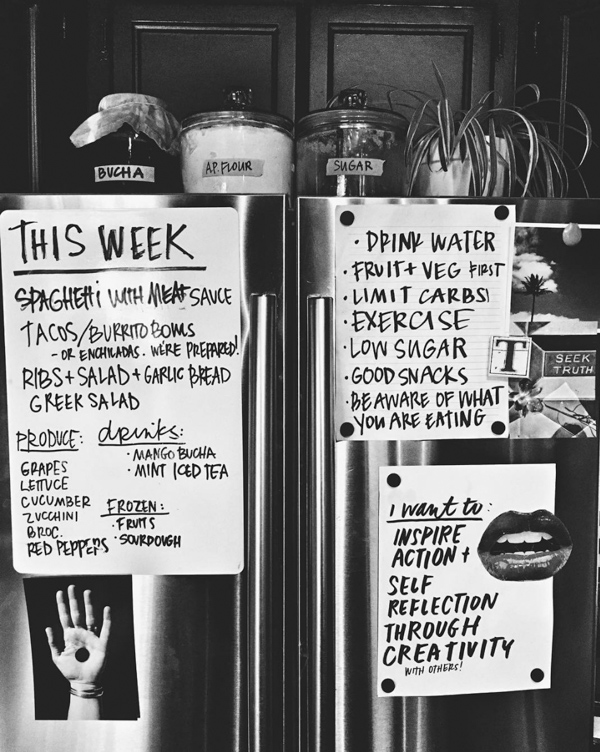 BUCHA
A.P. FLOUR
SUGAR
THIS WEEK
SPAGHETTI WITH MEAT SAUCE
TACOS/BURRITO BOWLS
- OR ENCHILADAS. WE'RE PREPARED!
RIBS + SALAD + GARLIC BREAD
GREEK SALAD
PRODUCE:
GRAPES
LETTUCE
CUCUMBER
ZUCCHINI
BROC.
RED PEPPERS
drinks:
· MANGO BUCHA
· MINT ICED TEA
FROZEN:
· FRUITS
· SOURDOUGH
· DRINK WATER
· FRUIT + VEG FIRST
· LIMIT CARBS!
· EXERCISE
· LOW SUGAR
· GOOD SNACKS
· BE AWARE OF WHAT
YOU ARE EATING
T
SEEK
TRUTH
i want to:
INSPIRE
ACTION +
SELF
REFLECTION
THROUGH
CREATIVITY
WITH OTHERS!